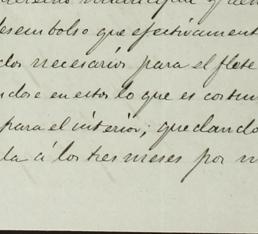 desembolso que efectivament
dos necesarios para el flete
ndose en estos lo que es costum
para el interior; quedando
da á los tres meses por m